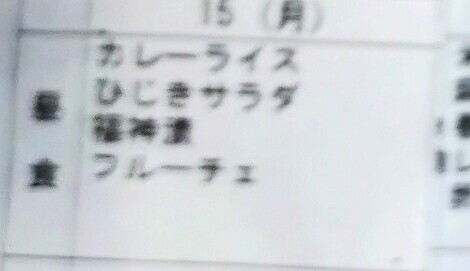 15 (月)
昼食
カレーライス
ひじきサラダ
福神漬
フルーチェ